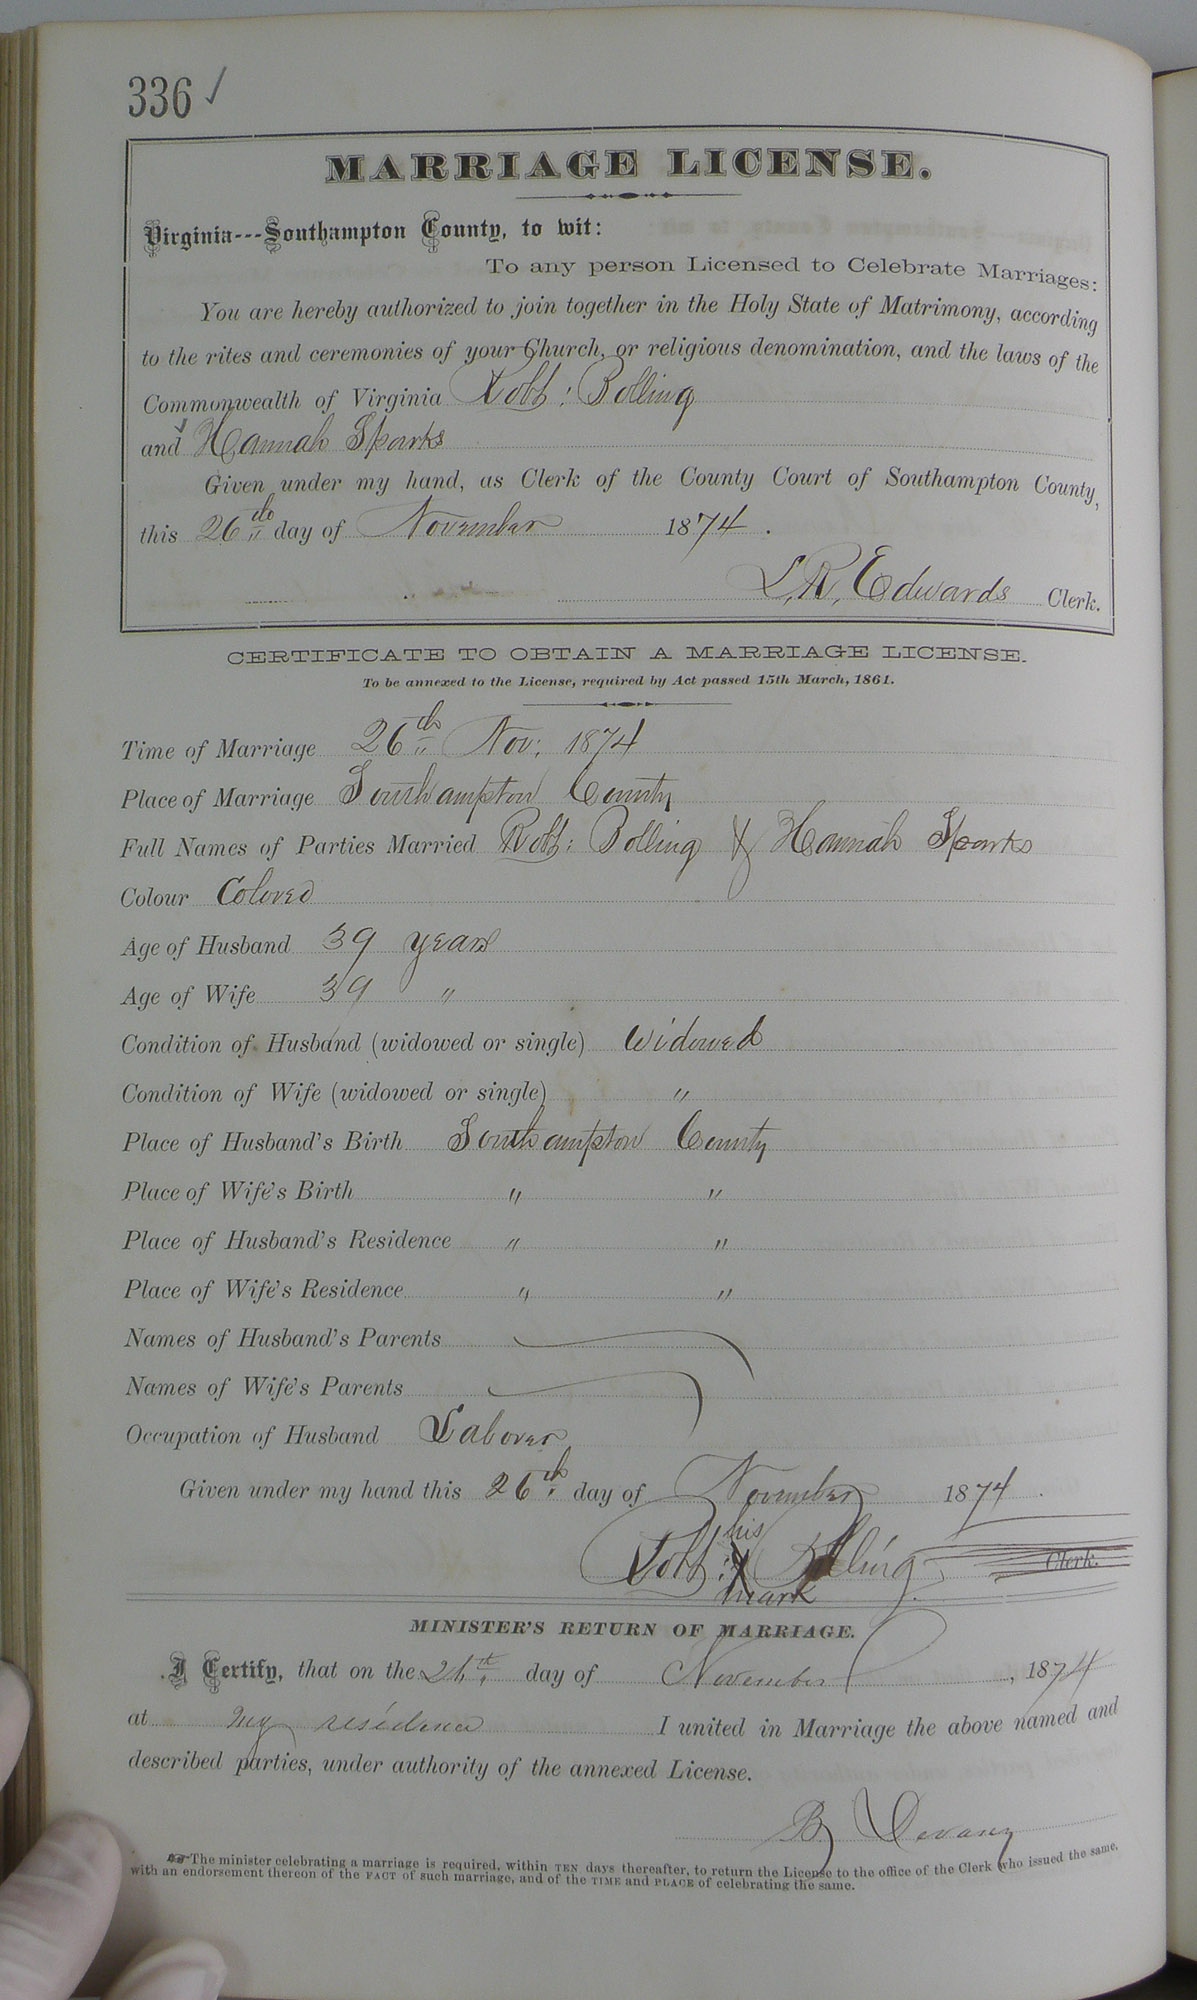 336 ✓
MARRIAGE LICENSE.
Virginia---Southampton County, to wit:
To any person Licensed to Celebrate Marriages:
You are hereby authorized to join together in the Holy State of Matrimony, according
to the rites and ceremonies of your Church, or religious denomination, and the laws of the
Commonwealth of Virginia Robt: Bolling
and Hannah Sparks
Given under my hand, as Clerk of the County Court of Southampton County,
this 26th day of November 1874.
L. R. Edwards Clerk.
CERTIFICATE TO OBTAIN A MARRIAGE LICENSE.
To be annexed to the License, required by Act passed 15th March, 1861.
Time of Marriage 26th Nov: 1874
Place of Marriage Southampton County
Full Names of Parties Married Robt: Bolling & Hannah Sparks
Colour Colored
Age of Husband 39 years
Age of Wife 39 "
Condition of Husband (widowed or single) Widowed
Condition of Wife (widowed or single) "
Place of Husband's Birth Southampton County
Place of Wife's Birth " "
Place of Husband's Residence " "
Place of Wife's Residence " "
Names of Husband's Parents
Names of Wife's Parents
Occupation of Husband Laborer
Given under my hand this 26th day of November 1874.
his
Robt: X Bolling Clerk.
mark
MINISTER'S RETURN OF MARRIAGE.
I Certify, that on the 26th day of November, 1874
at my residence I united in Marriage the above named and
described parties, under authority of the annexed License.
By
The minister celebrating a marriage is required, within TEN days thereafter, to return the License to the office of the Clerk who issued the same,
with an endorsement thereon of the FACT of such marriage, and of the TIME and PLACE of celebrating the same.